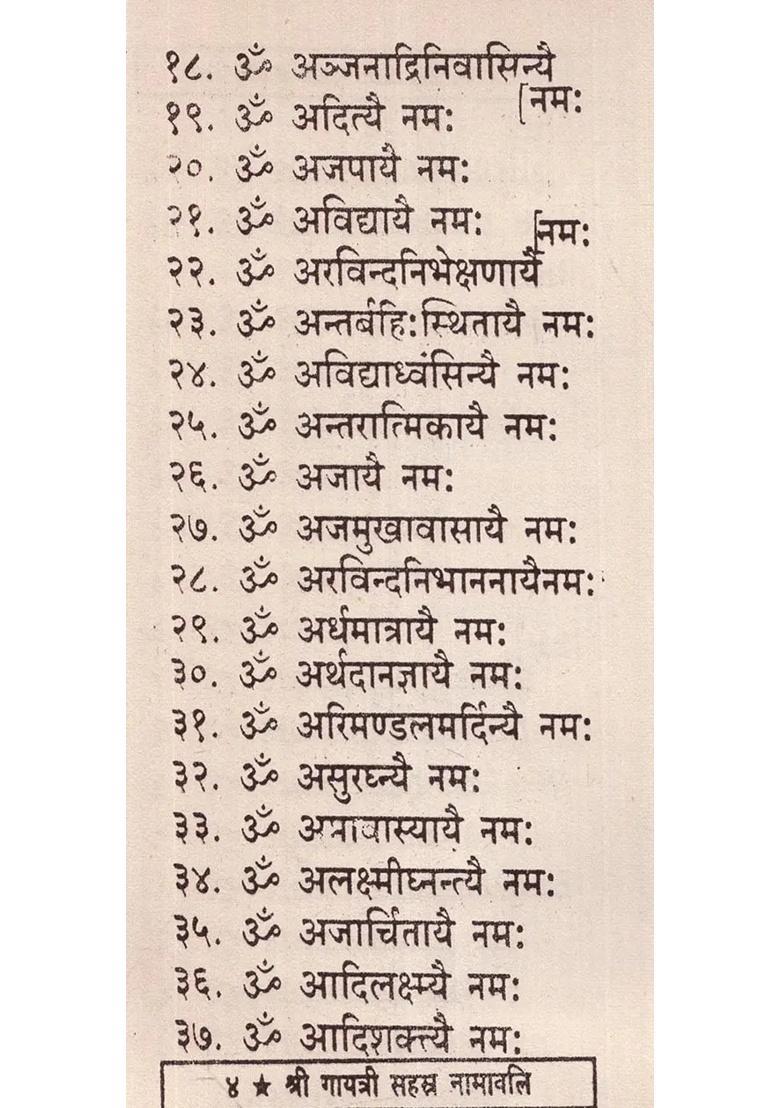 १८. ॐ अञ्जनाद्रिनिवासिन्यै
[नम:
१९. ॐ अदित्यै नम:
२०. ॐ अजपायै नम:
२१. ॐ अविद्यायै नम:
[नम:
२२. ॐ अरविन्दनिभेक्षणायै
२३. ॐ अन्तर्बहि:स्थितायै नम:
२४. ॐ अविद्याध्वंसिन्यै नम:
२५. ॐ अन्तरात्मिकायै नम:
२६. ॐ अजायै नम:
२७. ॐ अजमुखावासायै नम:
२८. ॐ अरविन्दनिभाननायैनम:
२९. ॐ अर्धमात्रायै नम:
३०. ॐ अर्थदानज्ञायै नम:
३१. ॐ अरिमण्डलमर्दिन्यै नम:
३२. ॐ असुरघ्न्यै नम:
३३. ॐ अमावास्यायै नम:
३४. ॐ अलक्ष्मीघ्नन्त्यै नम:
३५. ॐ अजार्चितायै नम:
३६. ॐ आदिलक्ष्म्यै नम:
३७. ॐ आदिशक्त्यै नम:
४ ★ श्री गायत्री सहस्र नामावलि